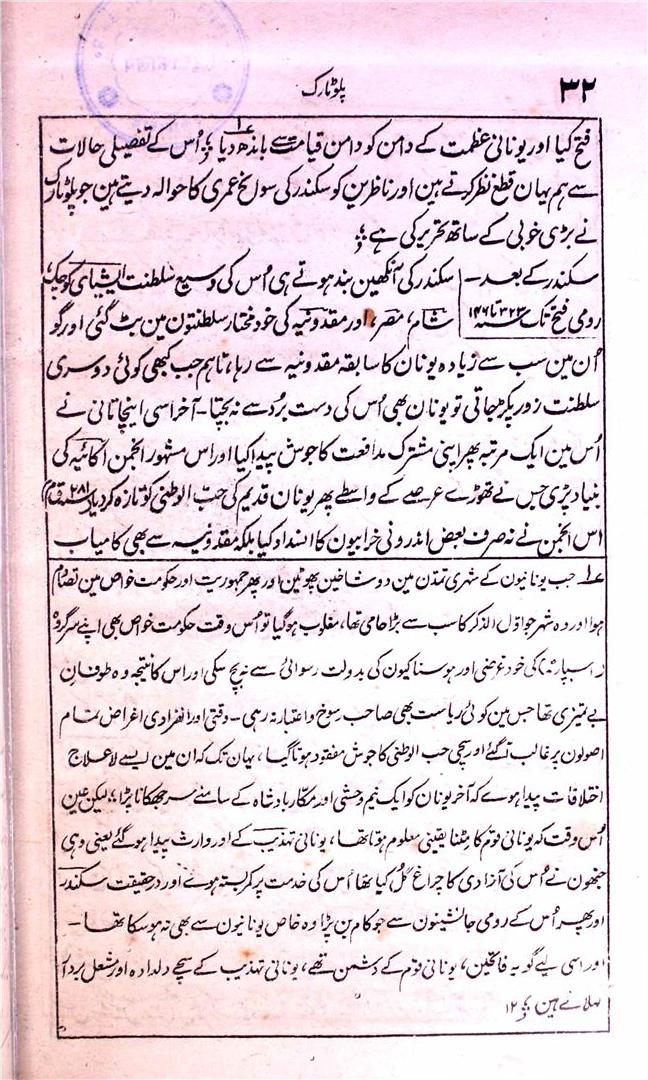 ۳۲
پلوٹارک
فتح کیا اور یونانی عظمت کے دامن کو دامن قیامت سے باندھ دیا ؛ اُس کے تفصیلی حالات
سے ہم یہان قطع نظر کرتے ہین اور ناظرین کو سکندر کی سوانح عمری کا حوالہ دیتے ہین جو پلوٹارک
نے بڑی خوبی کے ساتھ تحریر کی ہے ؛
سکندر کے بعد۔
رومی فتح تک ۳۲۳ تا ۱۴۶
سکندر کی آنکھین بند ہوتے ہی اُس کی وسیع سلطنت ایشیای کوچک،
شام، مصر، اور مقدونیہ کی خود مختار سلطنتون مین بٹ گئی اور گو
اُن مین سب سے زیادہ یونان کا سابقہ مقدونیہ سے رہا، تاہم جب کبھی کوئی دوسری
سلطنت زور پکڑ جاتی تو یونان بھی اُس کی دست بُرد سے نہ بچتا۔ آخر اسی اینچا تانی نے
اُس مین ایک مرتبہ پھر اپنی مشترک مدافعت کا جوش پیدا کیا اور اس مشہور انجمن اکائیہ کی
بنیاد پڑی جس نے تھوڑے عرصے کے واسطے پھر یونان قدیم کی حب الوطنی کو تازہ کر دیا (۲۸۱ ق م)
اس انجمن نے نہ صرف بعض اندرونی خرابیون کا انسداد کیا بلکہ مقدونیہ سے بھی کامیاب
۱؎ جب یونانیون کے شہری تمدن مین دو شاخین پھوٹین اور پھر جمہوریت اور حکومت خواص مین تصادم
ہوا اور وہ شہر جو اول الذکر کا سب سے بڑا حامی تھا، مغلوب ہو گیا تو اُس وقت حکومت خواص بھی اپنے سرگروہ
(اسپارٹہ) کی خود غرضی اور ہوسناکیون کی بدولت رسوائی سے نہ بچ سکی اور اس کا نتیجہ وہ طوفان
بے تمیزی تھا جس مین کوئی ریاست بھی صاحب رسوخ و اعتبار نہ رہی۔ وقتی اور انفرادی اغراض تمام
اصولون پر غالب آ گئے اور سچی حب الوطنی کا جوش مفقود ہوتا گیا، یہان تک کہ ان مین ایسے لاعلاج
اختلافات پیدا ہوے کہ آخر یونان کو ایک نیم وحشی اور مکار بادشاہ کے سامنے سر جھکانا پڑا ؛ لیکن عین
اُس وقت کہ یونانی قوم کا مٹنا یقینی معلوم ہوتا تھا، یونانی تہذیب کے اور وارث پیدا ہو گئے یعنی وہی
جنھون نے اُس کی آزادی کا چراغ گُل کیا تھا اُس کی خدمت پر کمر بستہ ہوئے اور درحقیقت سکندر
اور پھر اُس کے رومی جانشینون سے جو کام بن پڑا وہ خاص یونانیون سے بھی نہ ہو سکا تھا۔
اور اسی لیے گو یہ فاتحین، یونانی قوم کے دشمن تھے، یونانی تہذیب کے سچے دلدادہ اور مشعل بردار
کہلاتے ہین ؛ ۱۲